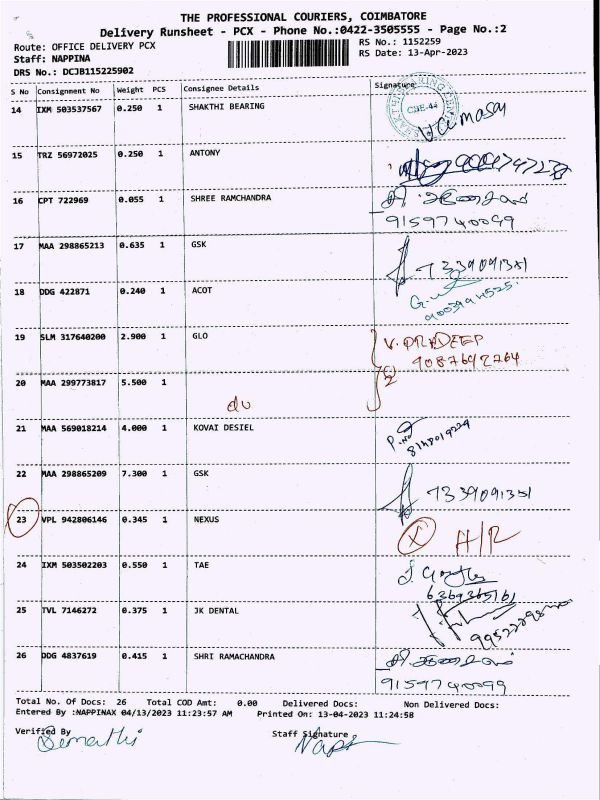 THE PROFESSIONAL COURIERS, COIMBATORE
Delivery Runsheet - PCX - Phone No.:0422-3505555 - Page No.:2
Route: OFFICE DELIVERY PCX
RS No.: 1152259
Staff: NAPPINA
RS Date: 13-Apr-2023
DRS No.: DCJB115225902
S No Consignment No Weight PCS Consignee Details Signature
14 IXM 503537567 0.250 1 SHAKTHI BEARING
15 TRZ 56972025 0.250 1 ANTONY
16 CPT 722969 0.055 1 SHREE RAMCHANDRA
9159740099
17 MAA 298865213 0.635 1 GSK 7339091351
18 DDG 422871 0.240 1 ACOT
19 SLM 317640200 2.900 1 GLO V. PRADEEP
9087692764
20 MAA 299773817 5.500 1 do
21 MAA 569018214 4.000 1 KOVAI DESIEL
22 MAA 298865209 7.300 1 GSK 7339091351
23 VPL 942806146 0.345 1 NEXUS X A/R
24 IXM 503502203 0.550 1 TAE
6369365161
25 TVL 7146272 0.375 1 JK DENTAL
26 DDG 4837619 0.415 1 SHRI RAMACHANDRA
9159740099
Total No. Of Docs: 26 Total COD Amt: 0.00 Delivered Docs: Non Delivered Docs:
Entered By :NAPPINAX 04/13/2023 11:23:57 AM Printed On: 13-04-2023 11:24:58
Verified By Staff Signature